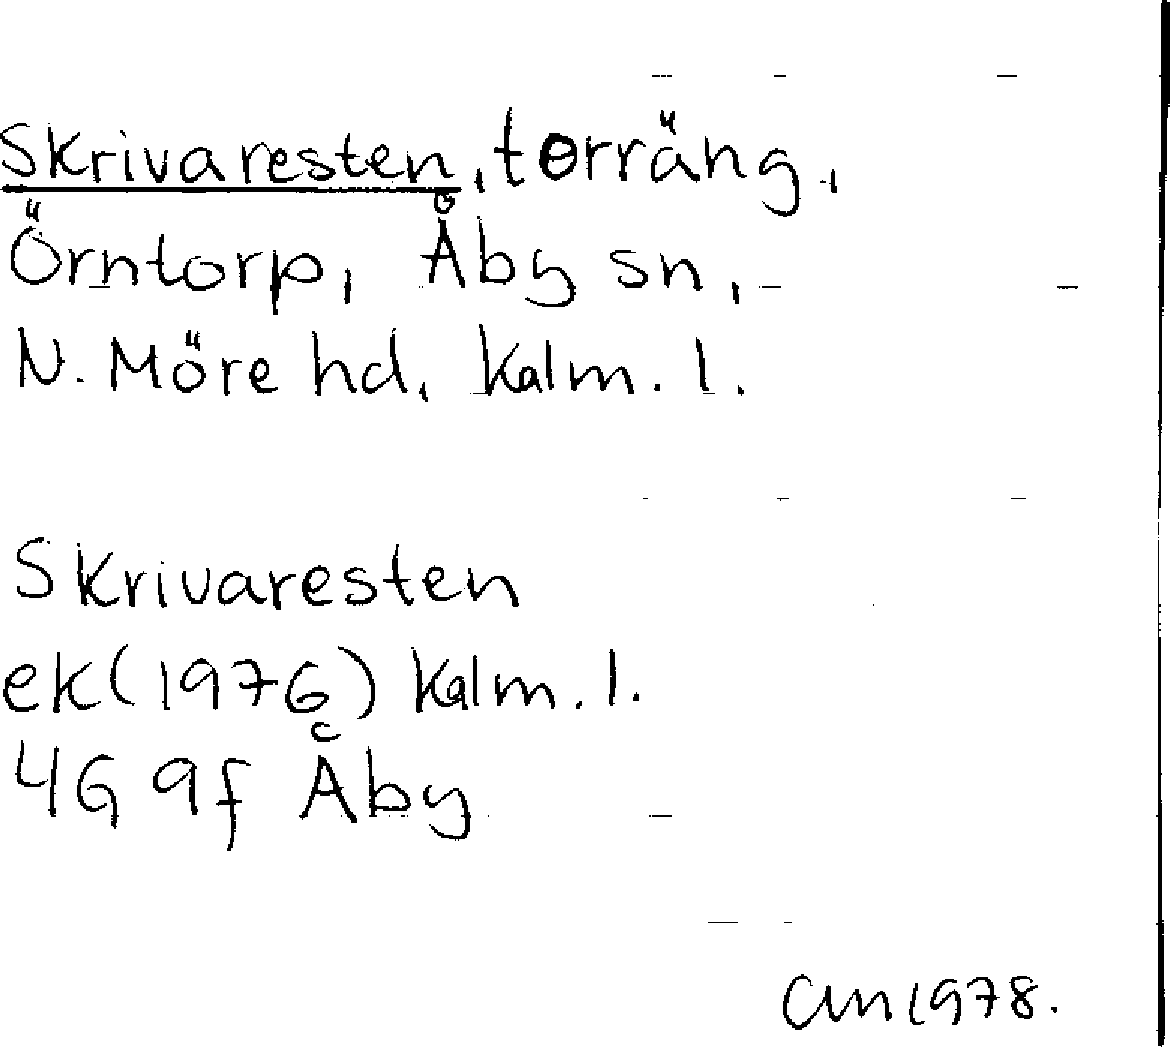 Skrivaresten, torräng,
Örntorp, Åby sn,
N. Möre hd, Kalm. l.
Skrivaresten
ek(1976) Kalm. l.
4G 9f Åby
CM 1978.